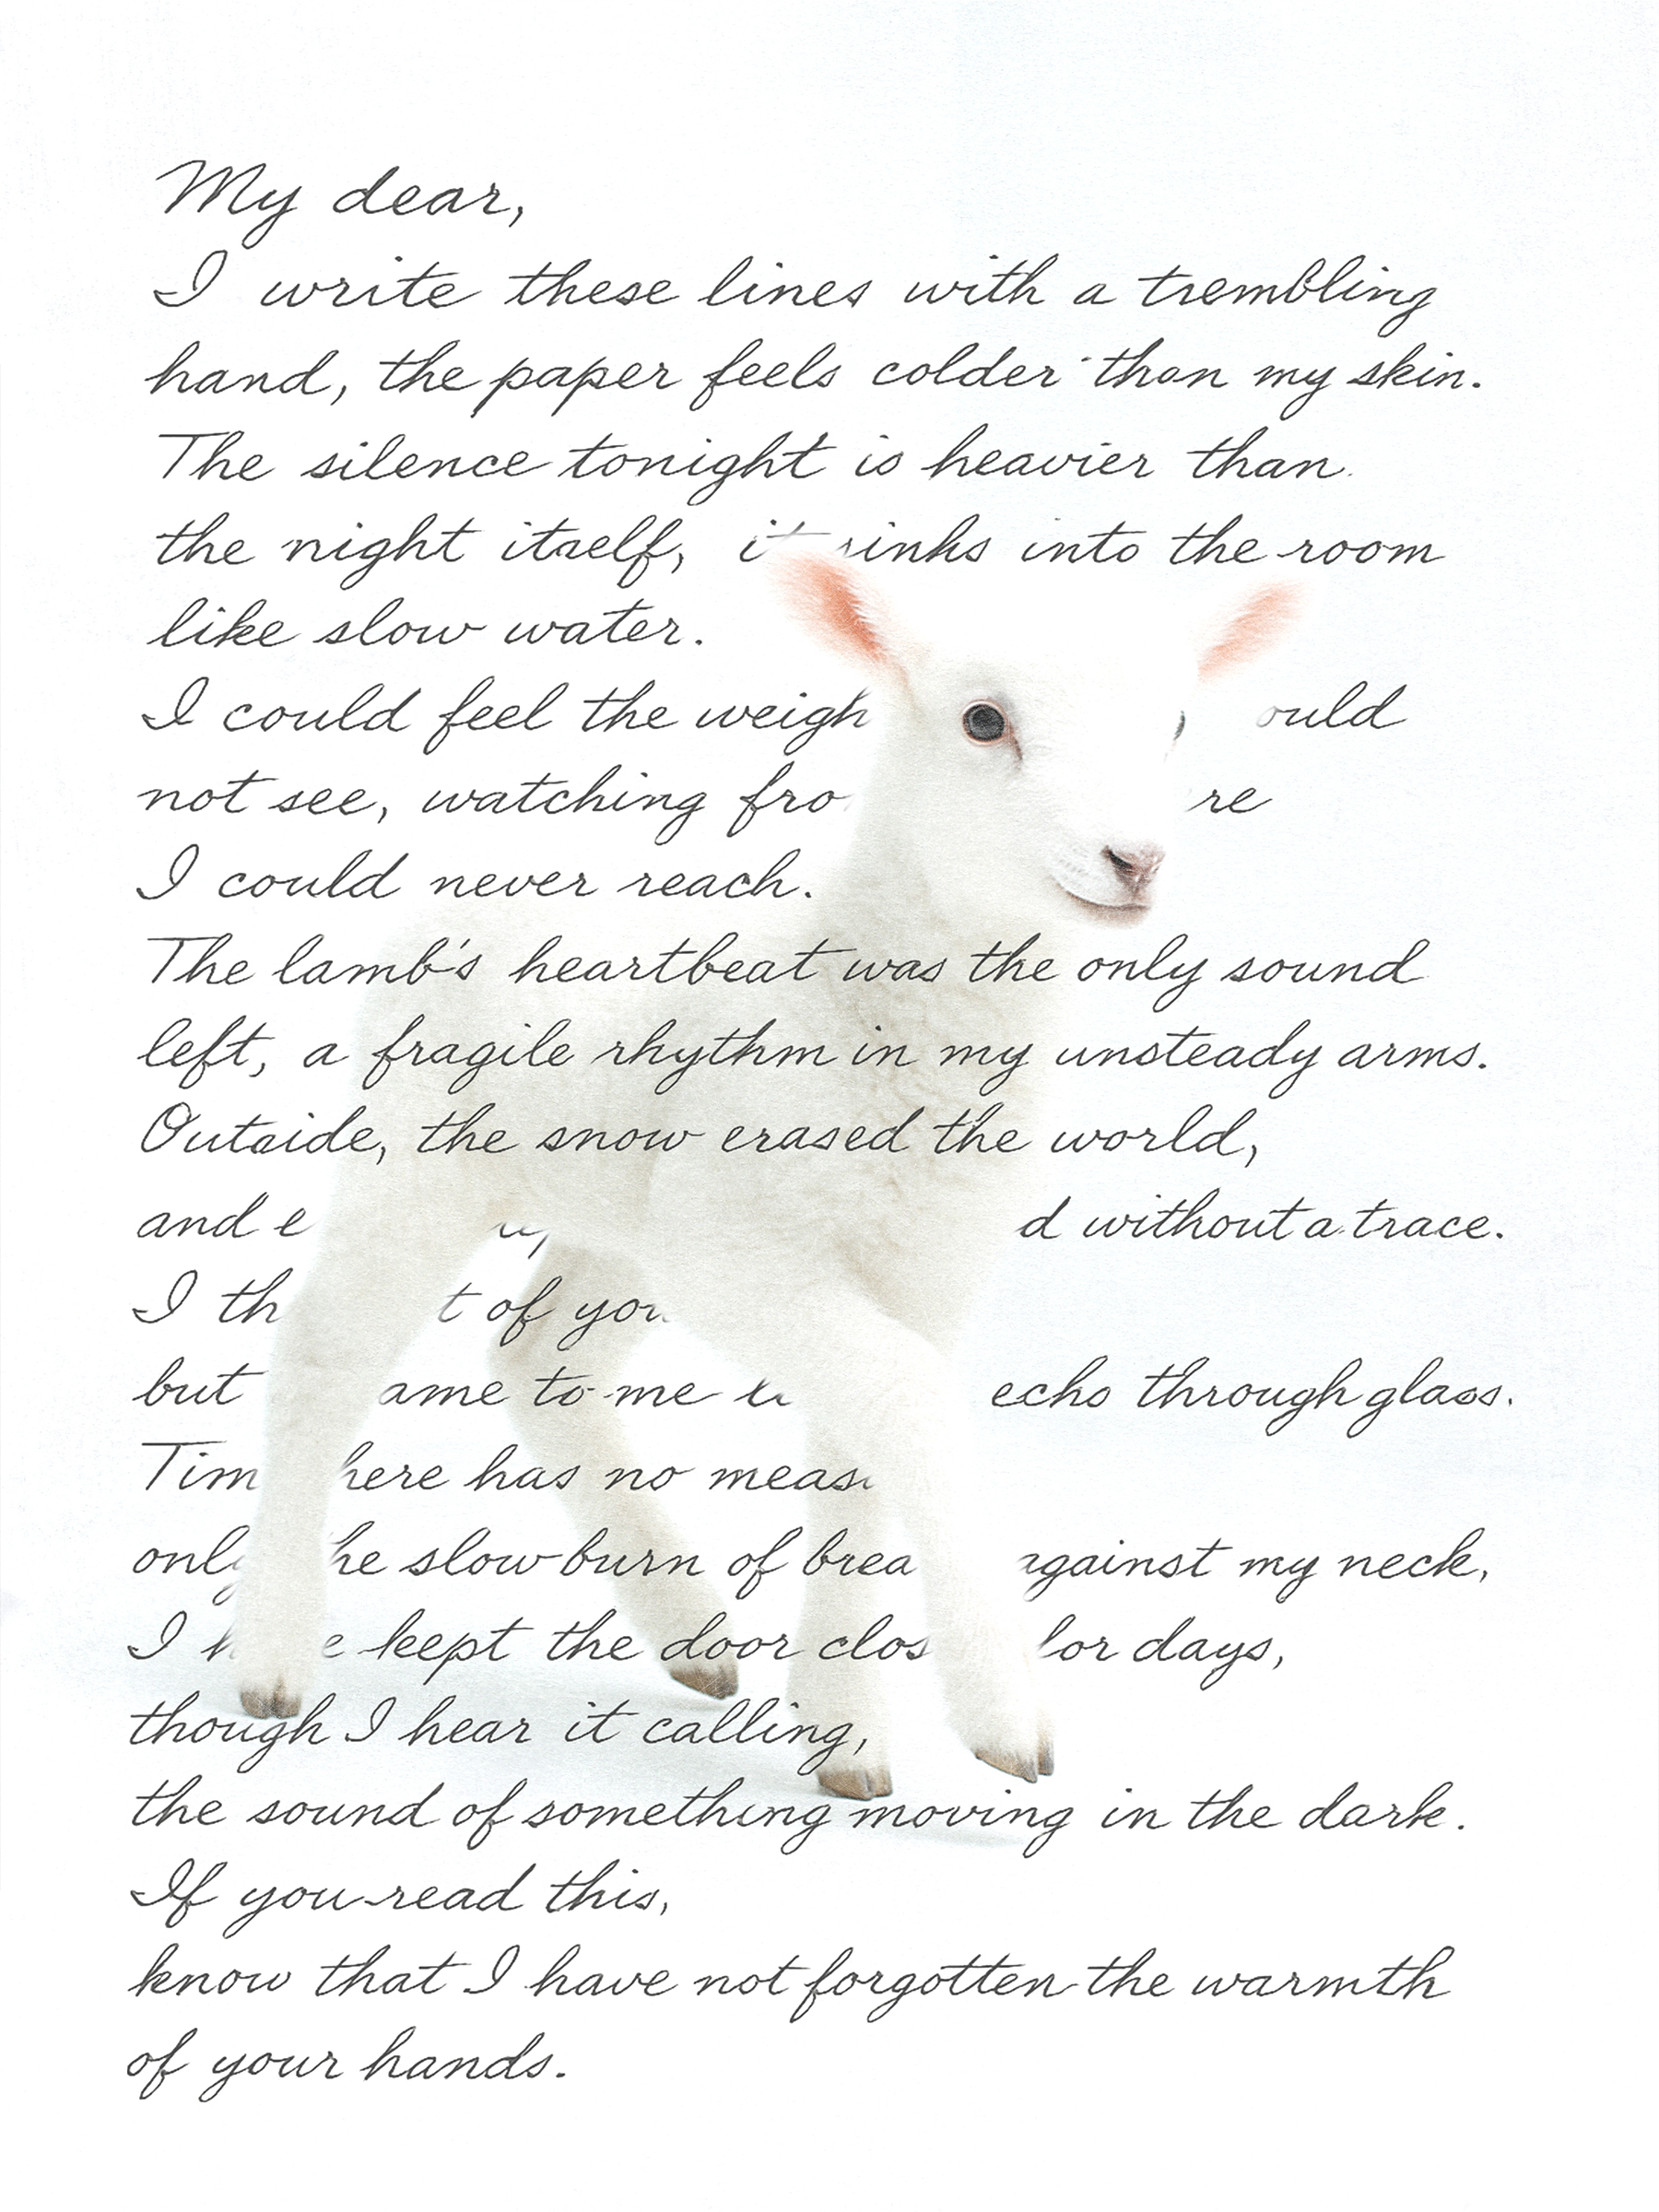 My dear,
I write these lines with a trembling
hand, the paper feels colder than my skin.
The silence tonight is heavier than
the night itself, it into the room
like slow water.
I could feel the
not see, watching
I could never reach.
The lamb's heartbeat was the only sound
left, a fragile rhythm in my unsteady arms.
Outside, the snow erased the world,
and without a trace.
I of
but to me echo through glass.
has no
only slow burn of against my neck,
I kept the door days,
though I hear it calling,
the sound of something moving in the dark.
If you read this,
know that I have not forgotten the warmth
of your hands.